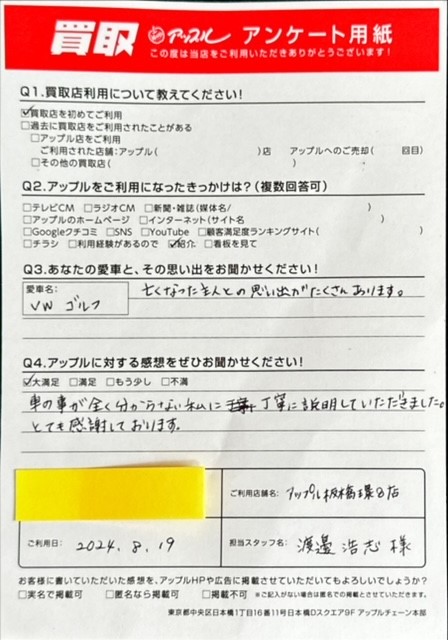 買取 アップル アンケート用紙
この度は当店をご利用いただきありがとうございます！
Q1.買取店利用について教えてください！
☑買取店を初めてご利用
□過去に買取店をご利用されたことがある
□アップル店をご利用
ご利用された店舗：アップル( )店 アップルへのご売却( 回目)
□その他の買取店( )
Q2.アップルをご利用になったきっかけは？(複数回答可)
□テレビCM □ラジオCM □新聞・雑誌(媒体名/ )
□アップルのホームページ □インターネット(サイト名 )
□Googleクチコミ □SNS □YouTube □顧客満足度ランキングサイト( )
□チラシ □利用経験があるので ☑紹介 □看板を見て
Q3.あなたの愛車と、その思い出をお聞かせください！
愛車名：
VW ゴルフ
亡くなった主人との思い出がたくさんあります。
Q4.アップルに対する感想をぜひお聞かせください！
☑大満足 □満足 □もう少し □不満
車の事が全く分からない私に 丁寧に説明していただきました。
とても感謝しております。
ご利用店舗名：アップル板橋環8店
ご利用日： 2024.8.19
担当スタッフ名： 渡邉 浩志 様
お客様に書いていただいた感想を、アップルHPや広告に掲載させていただいてもよろしいでしょうか？
□実名で掲載可 □匿名なら掲載可 □掲載不可 ※ご記入がない場合は匿名での掲載とさせていただきます。
東京都中央区日本橋1丁目16番11号日本橋Dスクエア9F アップルチェーン本部